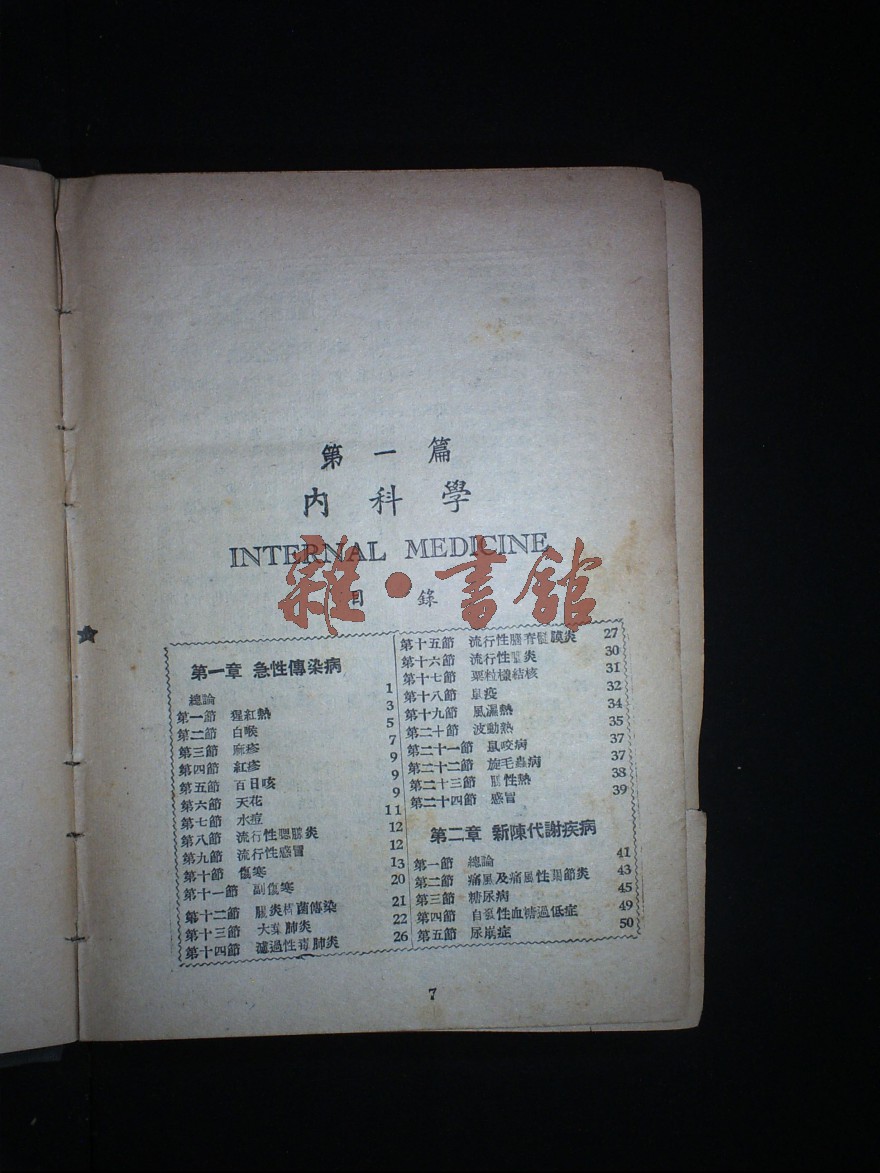 第一篇
內科學
INTERNAL MEDICINE
雜·書館
目錄
第一章 急性傳染病
總論 1
第一節 猩紅熱 3
第二節 白喉 5
第三節 麻疹 7
第四節 紅疹 9
第五節 百日咳 9
第六節 天花 9
第七節 水痘 11
第八節 流行性腮腺炎 12
第九節 流行性感冒 12
第十節 傷寒 13
第十一節 副傷寒 20
第十二節 腸炎桿菌傳染 21
第十三節 大葉肺炎 22
第十四節 濾過性毒肺炎 26
第十五節 流行性腦脊髓膜炎 27
第十六節 流行性腦炎 30
第十七節 粟粒樣結核 31
第十八節 鼠疫 32
第十九節 風濕熱 34
第二十節 波動熱 35
第二十一節 鼠咬病 37
第二十二節 旋毛蟲病 37
第二十三節 性熱 38
第二十四節 感冒 39
第二章 新陳代謝疾病
第一節 總論 41
第二節 痛風及痛風性關節炎 43
第三節 糖尿病 45
第四節 自發性血糖過低症 49
第五節 尿崩症 50
7